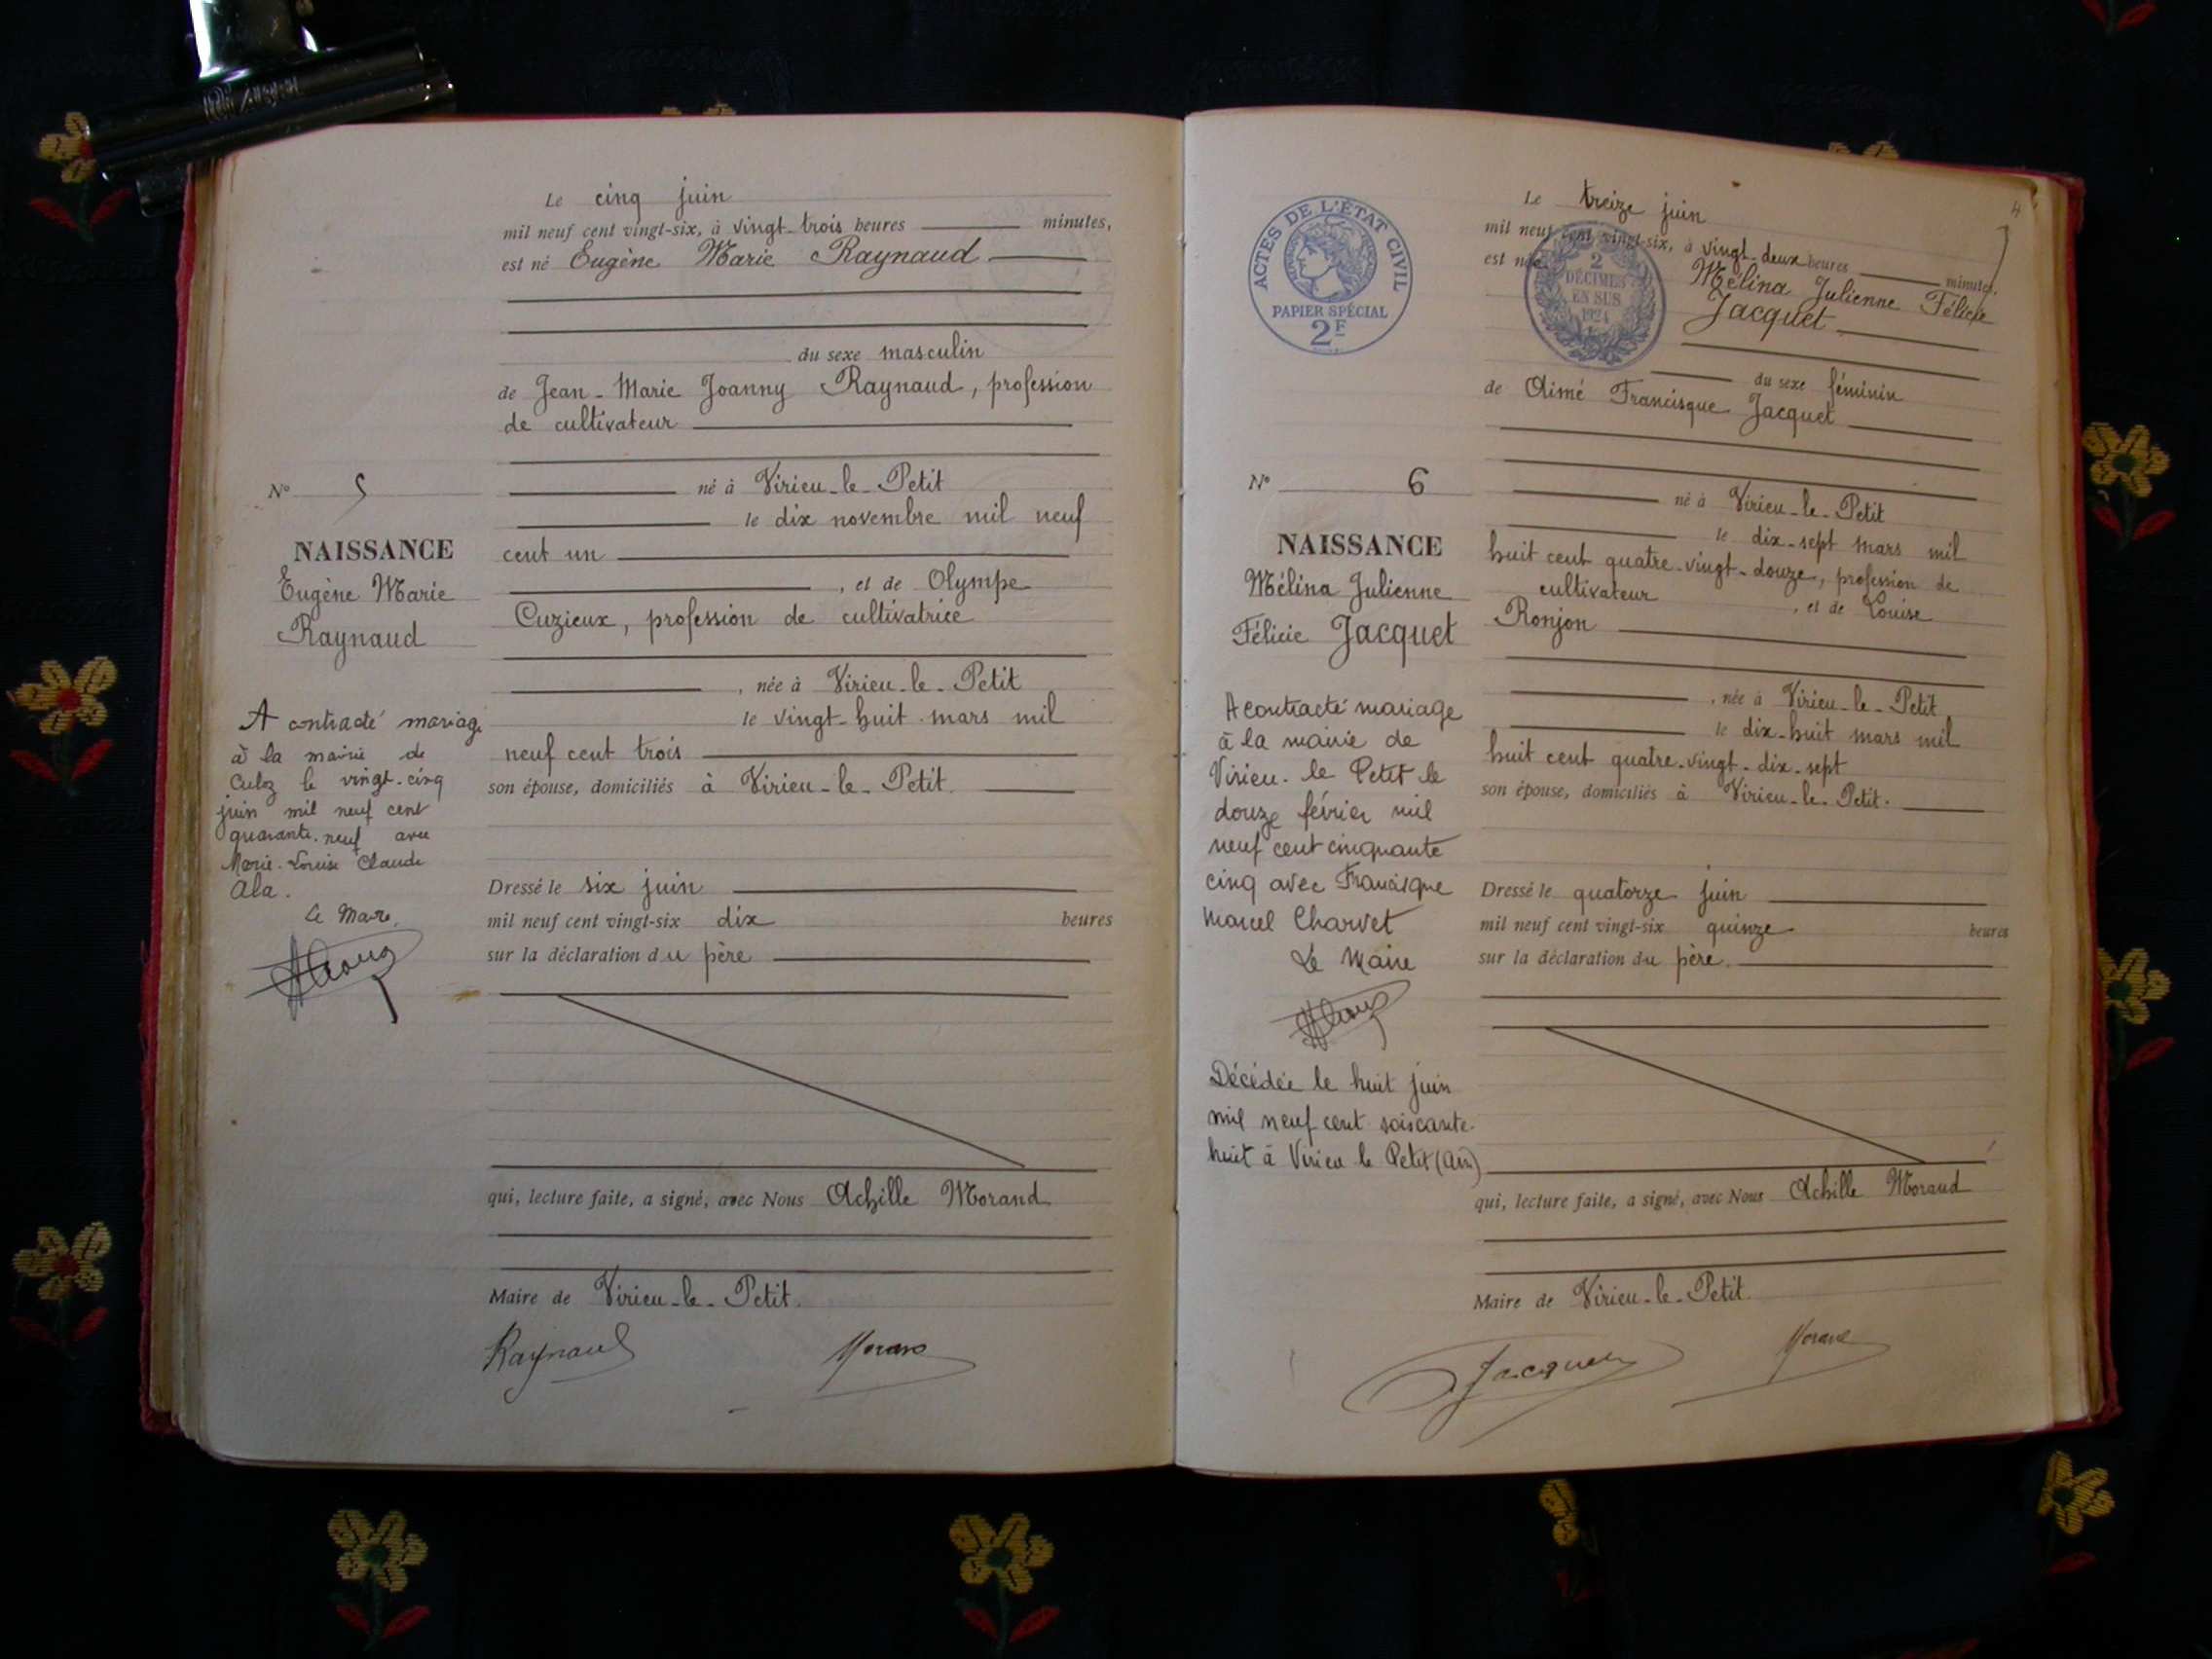 Le cinq juin
mil neuf cent vingt-six, à vingt-trois heures minutes,
est né Eugène Marie Raynaud
du sexe masculin
de Jean-Marie Joanny Raynaud, profession
de cultivateur
né à Virieu-le-Petit
le dix novembre mil neuf
cent un
, et de Olympe
Cuzieux, profession de cultivatrice
, née à Virieu-le-Petit
le vingt-huit mars mil
neuf cent trois
son épouse, domiciliés à Virieu-le-Petit.
Dressé le six juin
mil neuf cent vingt-six dix heures
sur la déclaration du père
qui, lecture faite, a signé, avec Nous Achille Morand
Maire de Virieu-le-Petit.
Raynaud Morand
N° 5
NAISSANCE
Eugène Marie
Raynaud
A contracté mariage
à la mairie de
Culoz le vingt-cinq
juin mil neuf cent
quarante-neuf avec
Marie-Louise Claude
Ala.
Le Maire,
ACTES DE L'ÉTAT CIVIL
PAPIER SPÉCIAL
2F
2
DÉCIMES
EN SUS
1924
4
Le treize juin
mil neuf cent vingt-six, à vingt-deux heures minutes,
est née
Mélina Julienne Félicie
Jacquet
du sexe féminin
de Aimé Francisque Jacquet
né à Virieu-le-Petit
le dix-sept mars mil
huit cent quatre-vingt-douze, profession de
cultivateur , et de Louise
Ronjon
, née à Virieu-le-Petit
le dix-huit mars mil
huit cent quatre-vingt-dix-sept
son épouse, domiciliés à Virieu-le-Petit.
Dressé le quatorze juin
mil neuf cent vingt-six quinze heures
sur la déclaration du père.
qui, lecture faite, a signé, avec Nous Achille Morand
Maire de Virieu-le-Petit.
Jacquet Morand
N° 6
NAISSANCE
Mélina Julienne
Félicie Jacquet
A contracté mariage
à la mairie de
Virieu-le Petit le
douze février mil
neuf cent cinquante
cinq avec Francisque
Marcel Charvet
Le Maire
Décédée le huit juin
mil neuf cent soixante-
huit à Virieu le Petit (Ain)